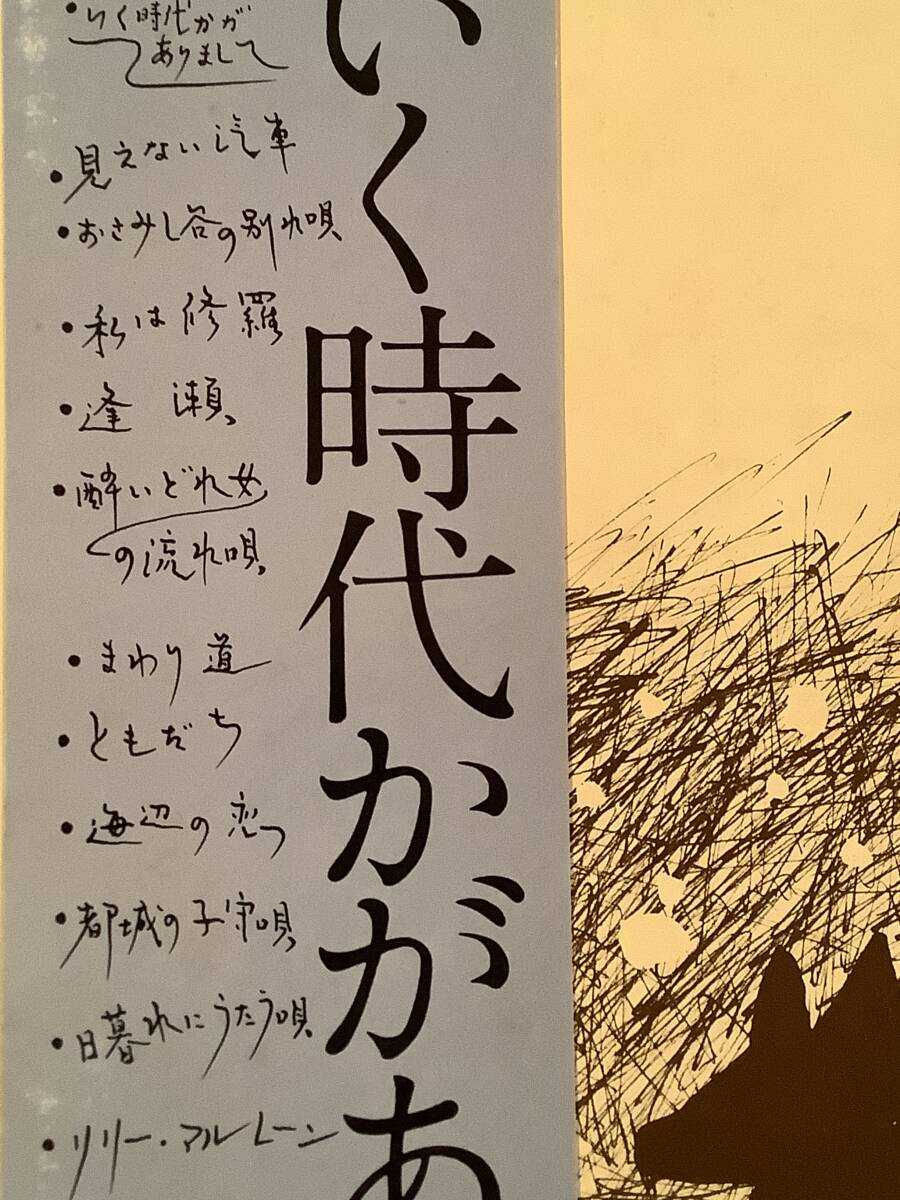 ・いく時代かが
ありまして
・見えない汽車
・おさみし谷の別れ唄
・私は修羅
・逢瀬
・酔いどれ女
の流れ唄
・まわり道
・ともだち
・海辺の恋
・都城の子守唄
・日暮れにうたう唄
・リリー・マルレーン
いく時代かがあ